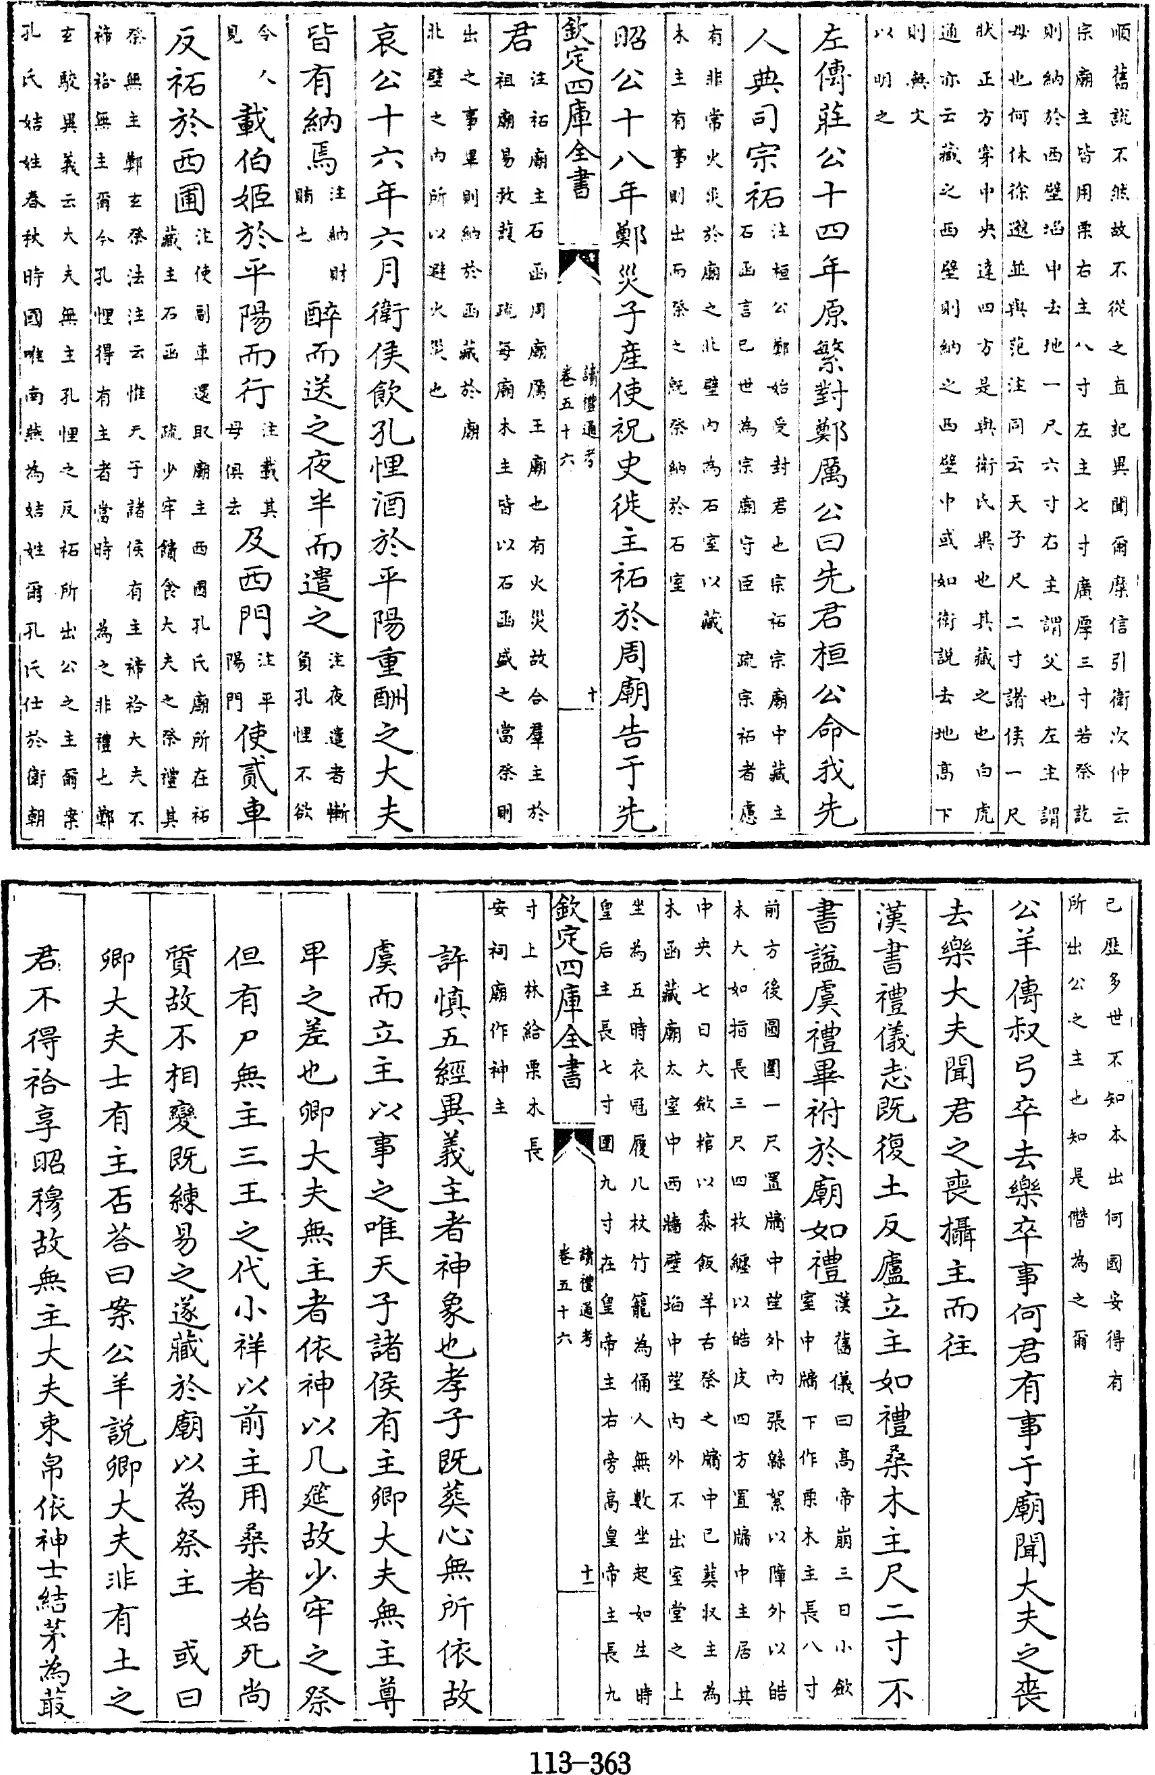 順舊説不然故不從之直記異聞爾糜信引衛次仲云
宗廟主皆用栗右主八寸左主七寸廣厚三寸若祭訖
則納於西壁埳中去地一尺六寸右主謂父也左主謂
母也何休徐邈並與范注同云天子尺二寸諸侯一尺
狀正方穿中央達四方是與衛氏異也其藏之也白虎
通亦云藏之西壁則納之西壁中或如衛説去地高下
則無文
以明之
左傳莊公十四年原繁對鄭厲公曰先君桓公命我先
人典司宗祏
注桓公鄭始受封君也宗祏宗廟中藏主
石函言已世為宗廟守臣 疏宗祏者慮
有非常火災於廟之北壁内為石室以藏
木主有事則出而祭之既祭納於石室
昭公十八年鄭災子產使祝史徙主祏於周廟告于先
欽定四庫全書
讀禮通考
卷五十六
十
君
注祏廟主石函周廟厲王廟也有火災故合羣主於
祖廟易救護 疏每廟木主皆以石函盛之當祭則
出之事畢則納於函藏於廟
北壁之内所以避火災也
哀公十六年六月衛侯飲孔悝酒於平陽重酬之大夫
皆有納焉
注納財
賄也
醉而送之夜半而遣之
注夜遣者慚
負孔悝不欲
令人
見
載伯姬於平陽而行
注載其
母俱去
及西門
注平
陽門
使貳車
反祏於西圃
注使副車還取廟主西圃孔氏廟所在祏
藏主石函 疏少牢饋食大夫之祭禮其
祭無主鄭玄祭法注云惟天子諸侯有主禘祫大夫不
禘祫無主爾今孔悝得有主者當時 為之非禮也鄭
玄駮異義云大夫無主孔悝之反祏所出公之主爾案
孔氏姞姓春秋時國唯南燕為姞姓爾孔氏仕於衛朝
已歷多世不知本出何國安得有
所出公之主也知是僭為之爾
公羊傳叔弓卒去樂卒事何君有事于廟聞大夫之喪
去樂大夫聞君之喪攝主而往
漢書禮儀志既復土反廬立主如禮桑木主尺二寸不
書諡虞禮畢祔於廟如禮
漢舊儀曰高帝崩三日小斂
室中牖下作栗木主長八寸
前方後圓圍一尺置牖中望外内張緜絮以障外以皓
木大如指長三尺四枚纏以皓皮四方置牖中主居其
中央七日大斂棺以黍飯羊舌祭之牖中已葬收主為
木函藏廟太室中西牆壁埳中望内外不出室堂之上
坐為五時衣冠履几杖竹籠為俑人無數坐起如生時
皇后主長七寸圍九寸在皇帝主右旁高皇帝主長九
欽定四庫全書
讀禮通考
卷五十六
十一
寸上林給栗木長
安祠廟作神主
許慎五經異義主者神象也孝子既葬心無所依故
虞而立主以事之唯天子諸侯有主卿大夫無主尊
卑之差也卿大夫無主者依神以几筵故少牢之祭
但有尸無主三王之代小祥以前主用桑者始死尚
質故不相變既練易之遂藏於廟以為祭主 或曰
卿大夫士有主否荅曰案公羊説卿大夫非有土之
君不得祫享昭穆故無主大夫束帛依神士結茅為菆
113-363